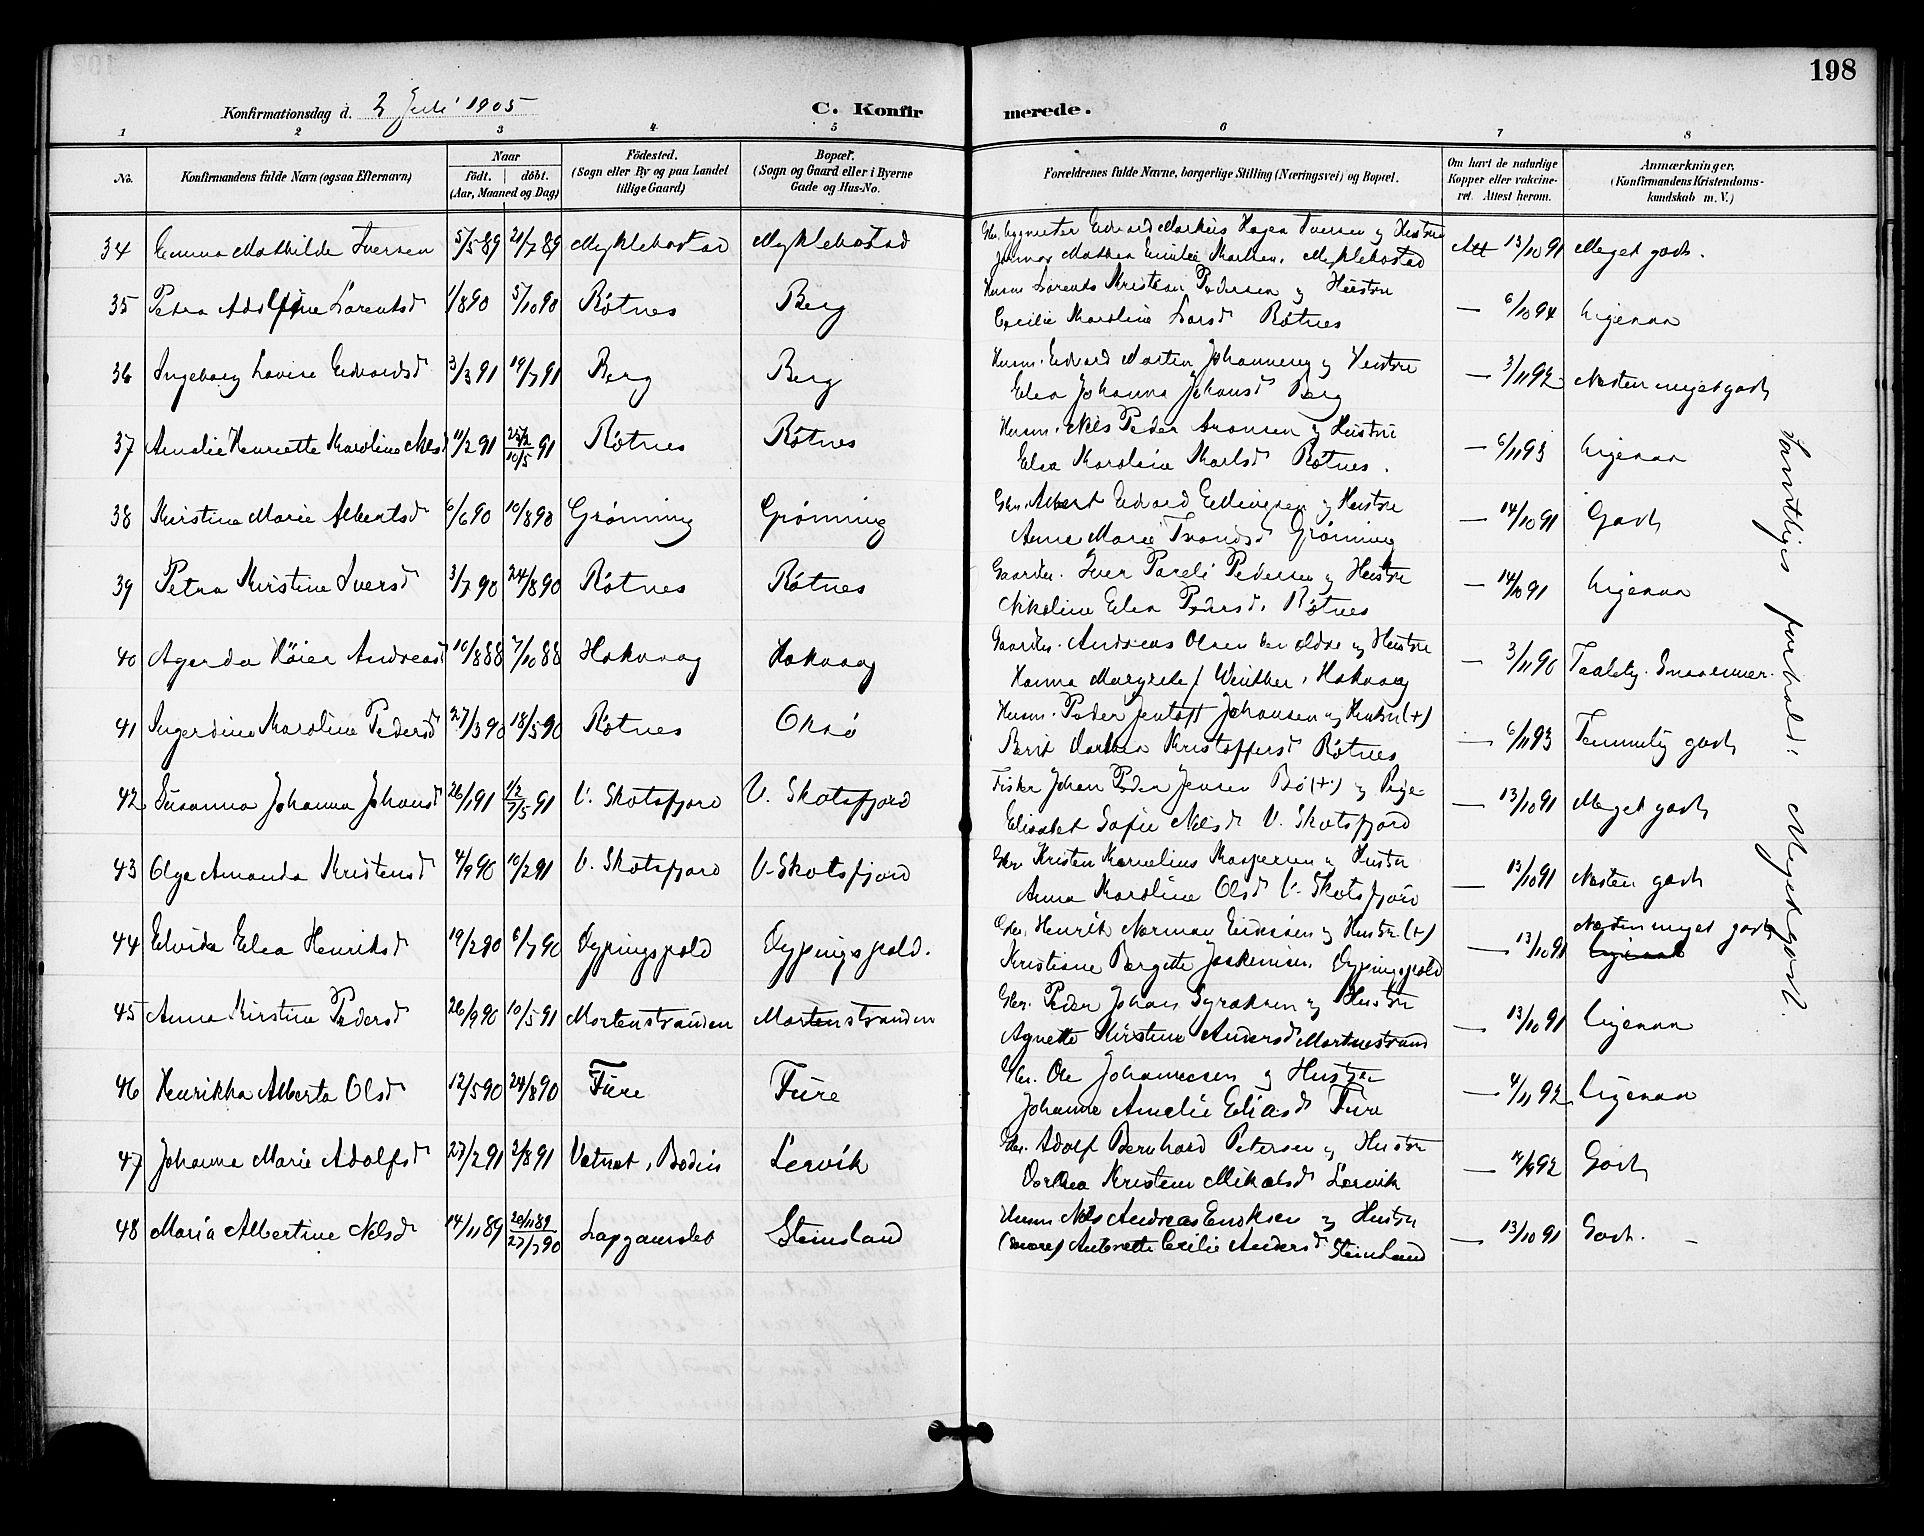 198
Konfirmationsdag d. 2 Juli 1905
C. Konfirmerede.
1 2 3 4 5 6 7 8
No.
Konfirmandens fulde Navn (ogsaa Efternavn)
Naar
født. døbt.
(Aar, Maaned og Dag)
Födested.
(Sogn eller By og paa Landet
tillige Gaard)
Bopæl.
(Sogn og Gaard eller i Byerne
Gade og Hus-No.
Forældrenes fulde Navne, borgerlige Stilling (Næringsvei) og Bopæl.
Om havt de naturlige
Kopper eller vakcine-
ret. Attest herom.
Anmærkninger.
(Konfirmandens Kristendoms-
kundskab m. V.)
34 Emma Mathilde Iversen 5/5 89 21/7 89 Myklebostad Myklebostad Edvard Markus Hagen Iversen og Hustru Att 13/10 91 Meget godt.
Mathea Emilie Myklebostad
35 Petra Adolfine Lorentsd 1/8 90 5/10 90 Røtnes Berg Husm. Lorents Kristian Pedersen og Hustru — 6/10 94 Ligesaa
Cecilie Karoline Larsd Røtnes
36 Ingeborg Lovise Edvardsd 3/3 91 19/7 91 Berg Berg Husm. Edvard Martin Johannesen og Hustru — 3/11 92 Næsten meget godt
Elea Johanna Johansd Berg
37 Amalie Henriette Karoline Nilsd 11/2 91 25/2 10/5 91 Røtnes Røtnes Husm. Nils Peder Aronsen og Hustru — 6/11 93 Ligesaa
Elea Karoline Karlsd Røtnes.
38 Kirstine Marie Albertsd 6/6 90 10/8 90 Grønning Grønning Gbr. Albert Edvard Ellingsen og Hustru — 14/10 91 Godt
Anne Marie Trondsd Grønning
39 Petra Kirstine Iversd 3/7 90 24/8 90 Røtnes Røtnes Gaardbr. Iver Pareli Pedersen og Hustru — 14/10 91 Ligesaa
Nikoline Elea Pedersd. Røtnes
40 Agerda Høier Andreasd 10/8 88 7/10 88 Hokvaag Hokvaag Gaardbr. Andreas Olsen den ældre og Hustru — 3/11 90 Taalelig.
Hanna Margrete f Winther, Hokvaag
41 Ingerdine Karoline Pedersd 27/3 90 18/5 90 Røtnes Oksø Husm. Peder Jentoft Johansen og Hustru (+) — 6/11 93 Temmelig godt
Berit Marthea Kristoffersd Røtnes
42 Susanna Johanna Johansd 26/1 91 1/2 7/5 91 V. Skotsfjord V. Skotsfjord Fisker Johan Peder Jensen Bø (+) og Pige — 13/10 91 Meget godt
Elisabet Sofie Nilsd V. Skotsfjord
43 Olga Amanda Kristensd 4/9 90 10/2 91 V. Skotsfjord V. Skotsfjord Gbr Kristen Kornelius Kaspersen og Hustru — 13/10 91 Næsten godt
Anna Karoline Olsd V. Skotsfjord
44 Elvida Elea Henriksd 19/2 90 6/7 90 Dypingspold Dypingspold. Gbr. Henrik Norman Eidissen og Hustru (+) — 13/10 91 Næsten meget godt
Kristiane Bergitte Joakimsen, Dypingspold Ligesaa
45 Anna Kirstine Pedersd 26/9 90 10/5 91 Mortenstranden Mortenstranden Gbr. Peder Johan Syraksen og Hustru — 13/10 91 Ligesaa
Agnette Kirstine Andersd Mortenstrand
46 Henrikka Alberta Olsd 12/5 90 24/8 90 Fure Fure Gbr. Ole Johannesen og Hustru — 4/11 92 Ligesaa
Johanna Amalie Eliasd Fure
47 Johanna Marie Adolfsd 27/2 91 2/8 91 Vatnet, Bodin Lervik Gbr. Adolf Bernhard Petersen og Hustru — 92 Godt
Dorthea Kristine Mikalsd Lervik
48 Maria Albertine Nilsd 14/11 89 20/11 89 27/7 90 Steinsland Husm Nils Andreas Enoksen og Hustru — 13/10 91 Godt. –
Antonette Cecilie Andersd Steinsland
Samtliges forhold: Meget godt.